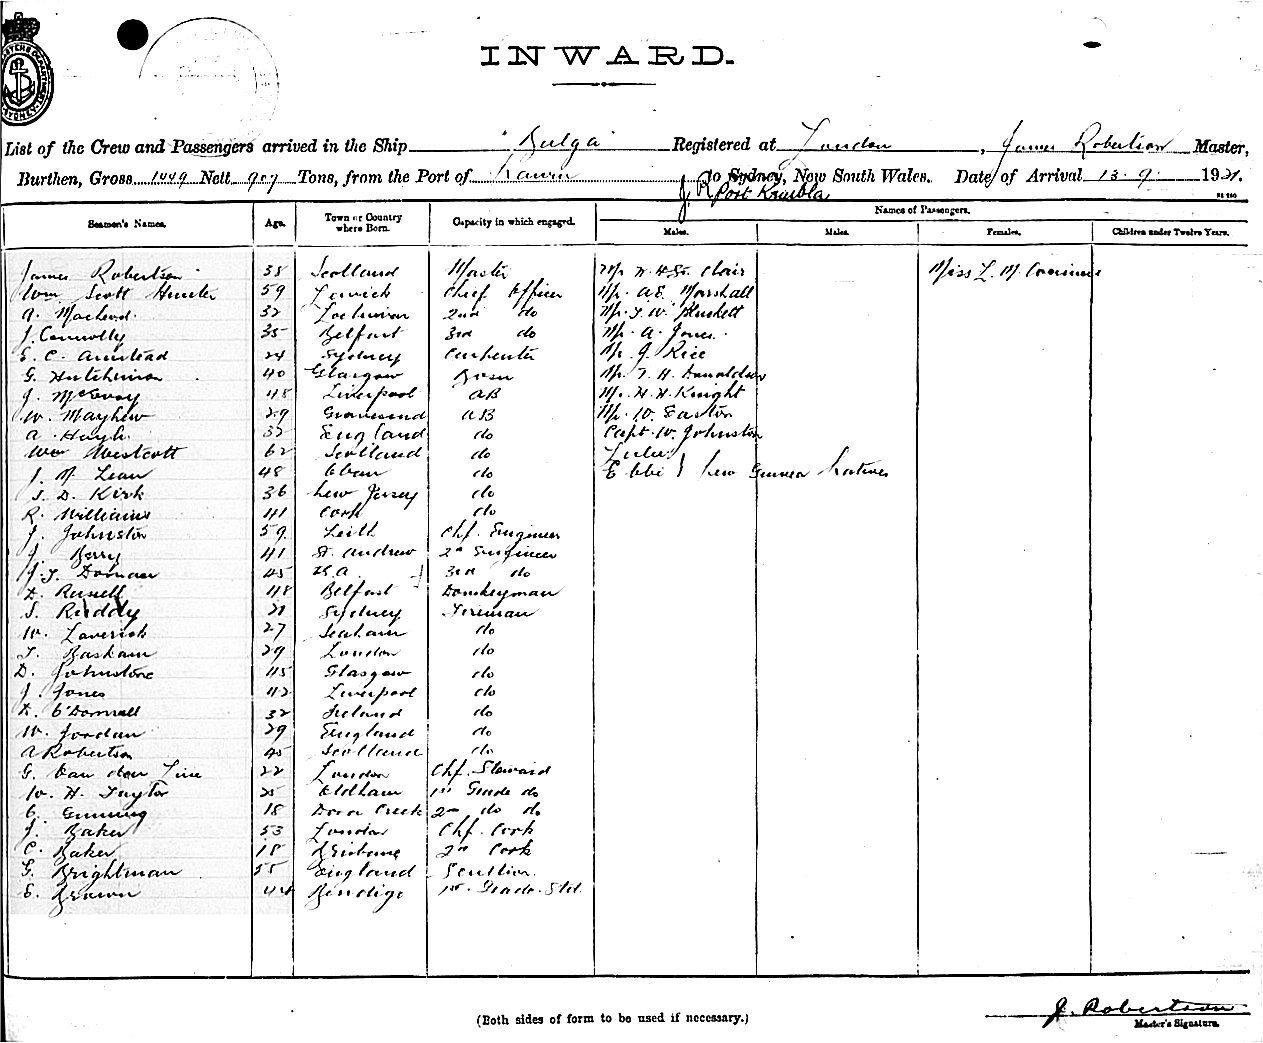 INWARD.
List of the Crew and Passengers arrived in the Ship "Bulga" Registered at London, James Robertson Master,
Burthen, Gross 1449 Nett 907 Tons, from the Port of to Sydney, New South Wales. Date of Arrival 13.9. 1921.
J R Port Kembla
Seamen's Names. Age. Town or Country where Born. Capacity in which engaged. Names of Passengers.
Males. Males. Females. Children under Twelve Years.
James Robertson 38 Scotland Master Mr W. H. St. Clair Miss L. M.
Wm Scott Hunter 59 Lerwick Chief Officer Mr. A E. Marshall
A. Macleod 32 2nd do Mr. T. W. Pluskett
J. Connolly 35 Belfast 3rd do Mr. A. Jones.
E. C. Armstead 24 Sydney Carpenter Mr J. Rice
G. Hutchinson 40 Glasgow Bosn Mr. T. H. Donaldson
J. McEvoy 48 Liverpool AB Mr. H. H. Knight
W. Mayhew 29 Gravesend AB Mr. W. Easton
A. Hugh. 32 England do Capt. W. Johnston
Wm Westcott 62 Scotland do
J. M. Lean 48 Oban do New Guinea Natives
J. D. Kirk 36 New Jersey do
R. Williams 41 Cork do
J. Johnston 59 Leith Chf. Engineer
J. Berry 41 St. Andrew 2nd Engineer
J. T. 45 3rd do
D. Russell 48 Belfast Donkeyman
S. Ruddy 21 Sydney Fireman
W. Laverick 27 Seaham do
T. Baskam 29 London do
D. Johnstone 45 Glasgow do
J. Jones 42 Liverpool do
D. O'Donnell 32 Ireland do
W. Jordan 29 England do
A Robertson 45 Scotland do
G. Van den 22 London Chf. Steward
W. H. Taylor 25 Oldham 1st Grade do
C. Gunning 18 Creek 2nd do do
J. Baker 53 London Chf. Cook
C. Baker 18 Brisbane 2nd Cook
G. Brightman 55 England Scullion
E. Brown 44 Bendigo 1st. Grade Std.
(Both sides of form to be used if necessary.)
J. Robertson
Master's Signature.